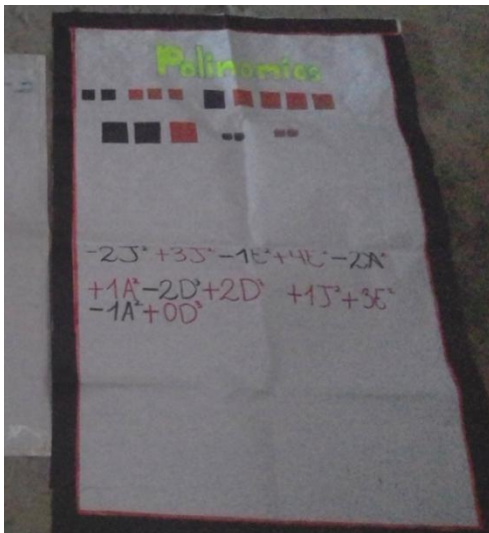 Polinomios
-2J² +3J² -1E² +4E² -2A²
+1A² -2D² +2D² +1J² +3E²
-1A² +0D²